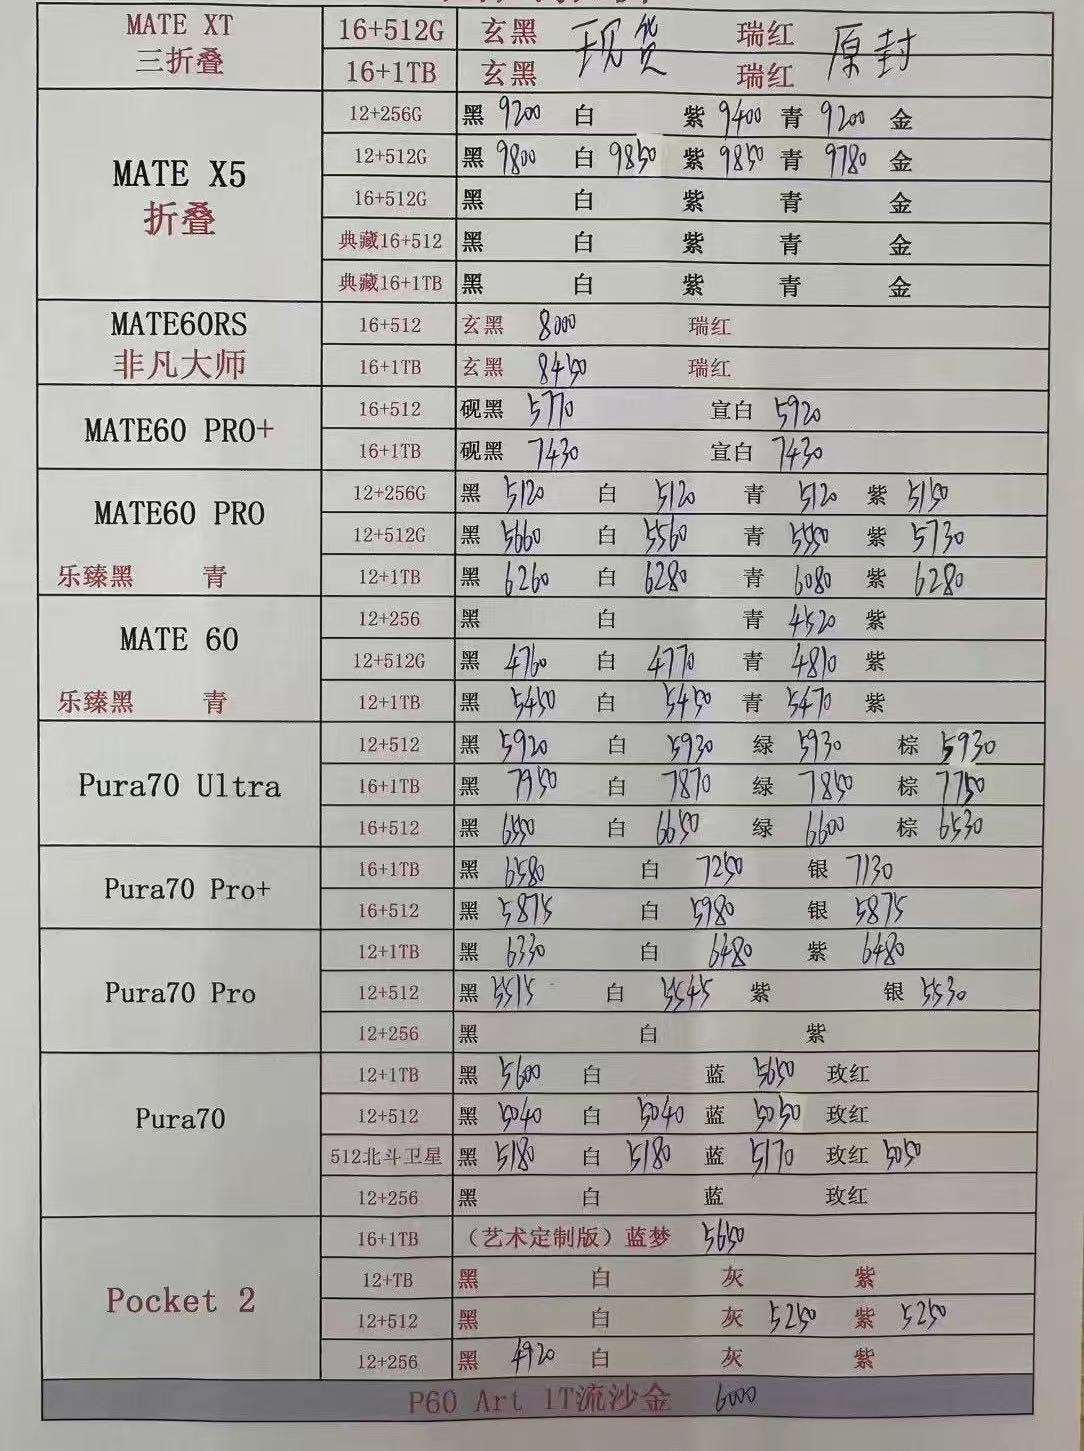 MATE XT 16+512G 玄黑 现货 瑞红 原封
三折叠 16+1TB 玄黑 瑞红
12+256G 黑 9200 白 紫 9400 青 9200 金
12+512G 黑 9800 白 9850 紫 9850 青 9780 金
MATE X5 16+512G 黑 白 紫 青 金
折叠 典藏16+512 黑 白 紫 青 金
典藏16+1TB 黑 白 紫 青 金
MATE60RS 16+512 玄黑 8000 瑞红
非凡大师 16+1TB 玄黑 8450 瑞红
MATE60 PRO+ 16+512 砚黑 5770 宣白 5920
16+1TB 砚黑 7430 宣白 7430
MATE60 PRO 12+256G 黑 5120 白 5120 青 5120 紫 5150
12+512G 黑 5660 白 5560 青 5550 紫 5730
乐臻黑 青 12+1TB 黑 6260 白 6280 青 6080 紫 6280
MATE 60 12+256 黑 白 青 4520 紫
12+512G 黑 4760 白 4770 青 4810 紫
乐臻黑 青 12+1TB 黑 5450 白 5450 青 5470 紫
12+512 黑 5920 白 5930 绿 5930 棕 5930
Pura70 Ultra 16+1TB 黑 7950 白 7870 绿 7850 棕 7750
16+512 黑 6550 白 6650 绿 6600 棕 6530
Pura70 Pro+ 16+1TB 黑 6580 白 7250 银 7130
16+512 黑 5875 白 5980 银 5875
12+1TB 黑 6330 白 6480 紫 6480
Pura70 Pro 12+512 黑 5515 白 5545 紫 银 5530
12+256 黑 白 紫
12+1TB 黑 5600 白 蓝 5650 玫红
Pura70 12+512 黑 5040 白 5040 蓝 5050 玫红
512北斗卫星 黑 5180 白 5180 蓝 5170 玫红 5050
12+256 黑 白 蓝 玫红
16+1TB （艺术定制版）蓝梦 5650
Pocket 2 12+TB 黑 白 灰 紫
12+512 黑 白 灰 5250 紫 5250
12+256 黑 4920 白 灰 紫
P60 Art 1T流沙金 6000